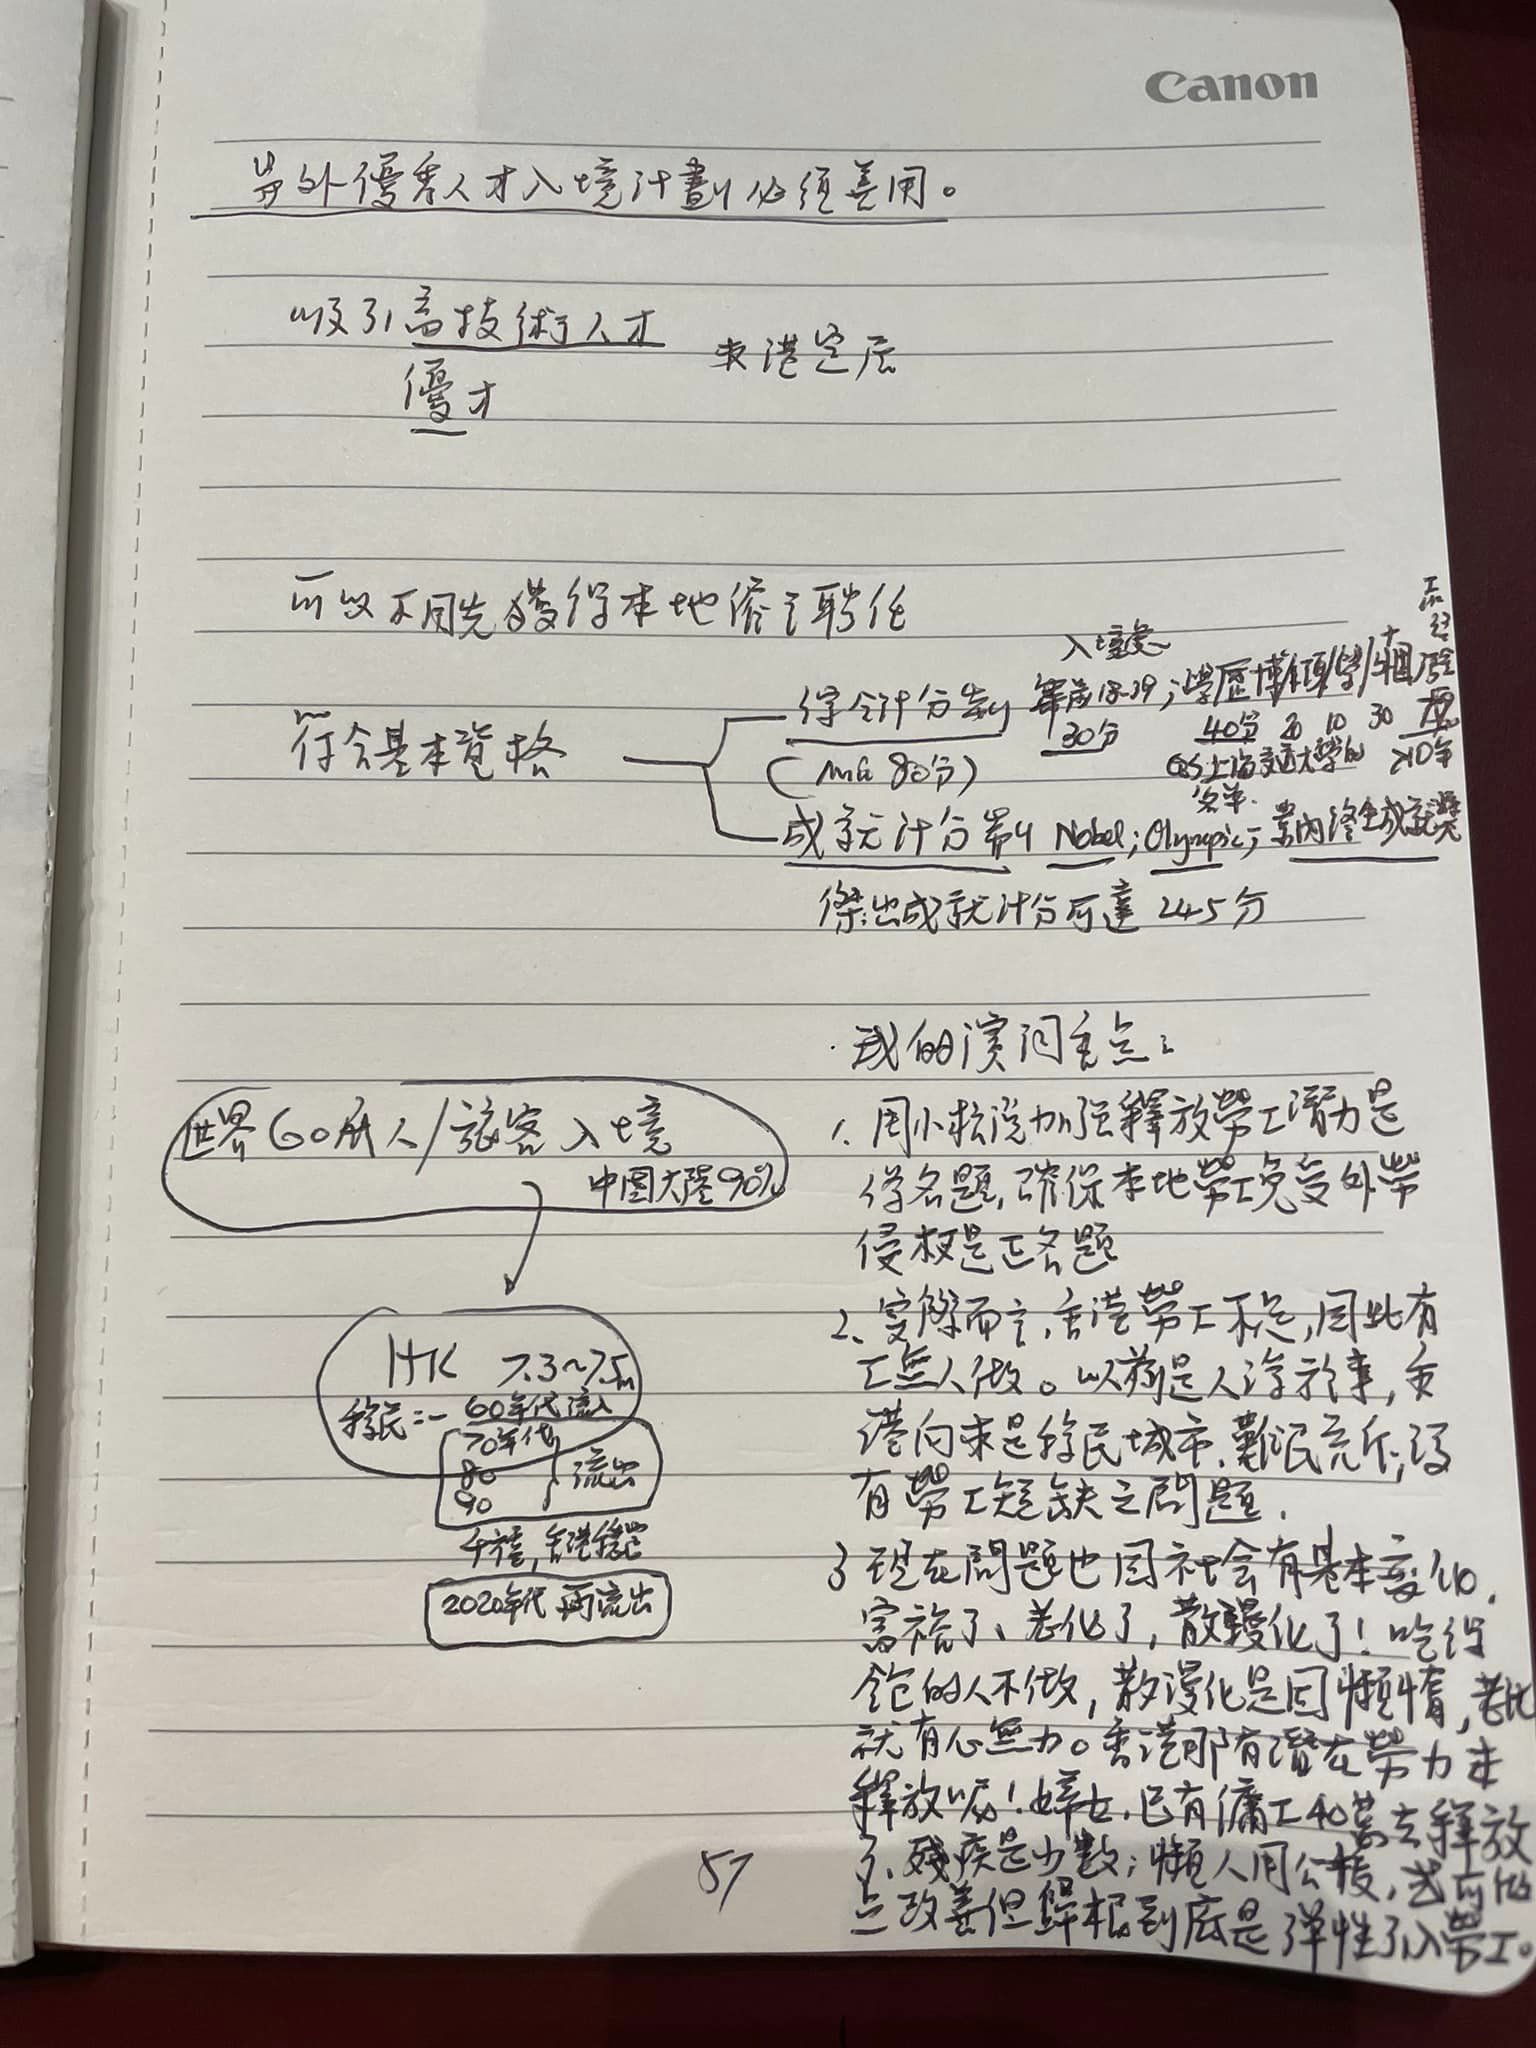 Canon
另外優秀人才入境計劃必須善用。
吸引高技術人才
優才
來港定居
可以不用先獲得本地僱主聘任
入境處
符合基本資格
綜合計分制 年齡18-39;學歷博/碩/學/
30分 40分 20 10 30
(max 80分)
QS上海交通大學的
名單.
≥10年
成就計分制 Nobel; Olympic; 業內終生成就獎
傑出成就計分可達 245分
我的演詞重點:
1. 用小標浣加強釋放勞工潛力是
偽名題,確保本地勞工免受外勞
侵权是正名題
2、實際而言,香港勞工不足,因此有
工無人做。以前是人浮於事,香
港向來是移民城市,難民充斥,沒
有勞工短缺之問題.
3 現在問題也因社會有基本變化,
富裕了、老化了,散漫化了!吃得
飽的人不做,散漫化是因懶惰,老化
就有心無力。香港那有潛在勞力來
釋放呢!婦女,已有傭工40萬去釋放
了、殘疾是少數;懶人用公援,或可做
点改善但歸根到底是彈性引入勞工。
世界60萬人/旅客入境
中国大陸90%
HK 7.3~7.5m
移民:- 60年代流入
70年代
80
90
流出
千禧,香港穩定
2020年代 再流出
57